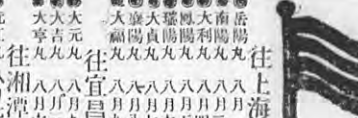 往上海
岳陽丸 八月
南陽丸 八月
大利丸 八月
鳳陽丸 八月
瑞陽丸 八月
大貞丸 八月
襄陽丸 八月
大福丸 八月
往宜昌
大元丸 八月
大吉丸 八月
大亨丸 八月
往湘潭